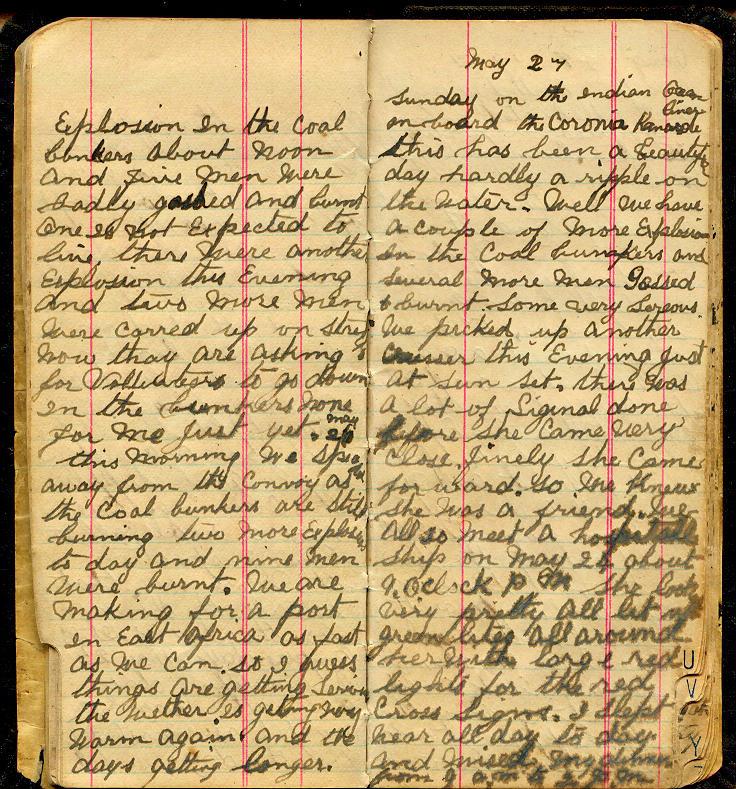 Explosion In the Coal
bunkers about Noon
And Five Men Were
badly gassed and burnt
One is Not Expected to
live, there Were another
Explosion this Evening
And two More Men
Were carred up on Strep
Now thay are asking
for Volluteers to go down
in the bunkers None
for Me Just yet. May 26
this Morning We
away from the Convoy as
the Coal bunkers are Still
burning two More Explosi
to day and nine Men
Were burnt. We are
Making for a port
in East Africa as fast
as We Can so I guess
things are getting Serius
the Wether is geting Very
Warm again. And the
days getting longer.
May 27
Sunday on the indian Ocan
on board the Coronia Liner
this has been a Beauty
day hardly a ripple on
the Water. Well We have
a couple of More Explosion
in the Coal bunkers and
Several More Men Gassed
& burnt Some very Sereous
We picked up another
Crusser this Evening Just
At Sun Set. there Was
A lot of Siginal done
before She Came Very
Close. finely She Came
for ward. So We Knew
She Was a friend. We
All so Meet A hospital
Ship on May 24 about
9. OClock P M She look
Very pretty All lit up
green lites All around
her With large red
lights for the red
Cross Signs. I Slept
near all day to day
And Mised My dinner
from 9 a.m to 2 P.M
U
V
Y